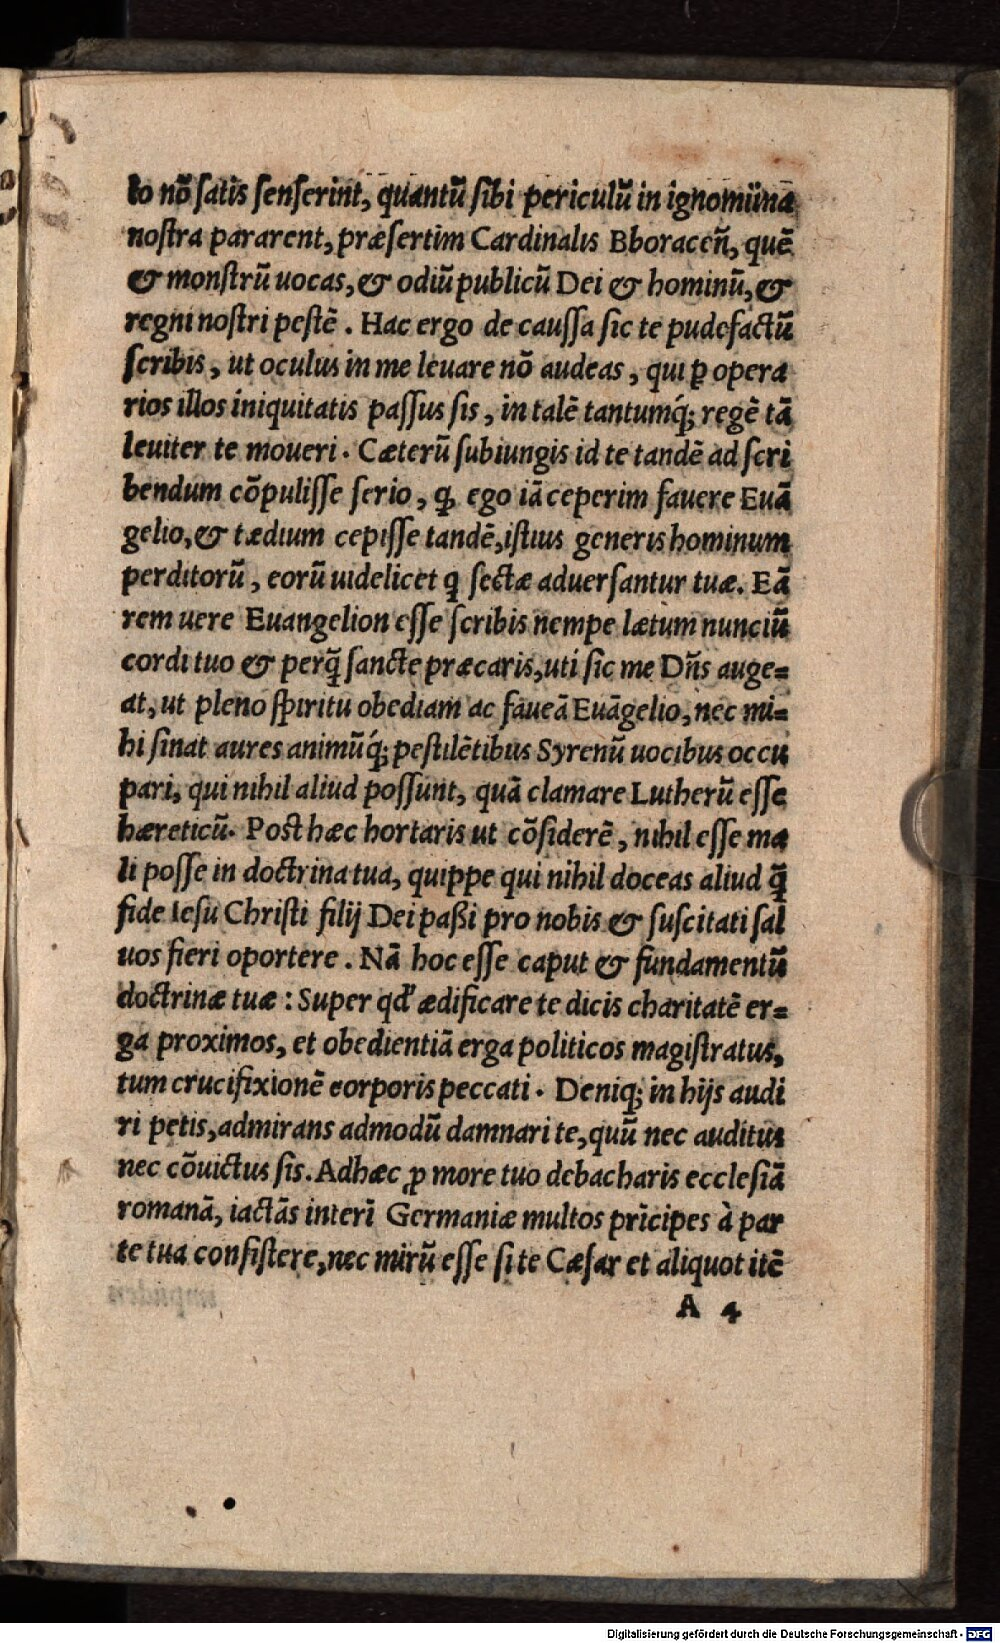 lo nō satis senserint, quantū sibi periculū in ignomiinā
nostra pararent, præsertim Cardinalis Bboraceñ, quē
& monstrū uocas, & odiū publicū Dei & hominū, &
regni nostri pestē. Hac ergo de caussa sic te pudefactū
scribis, ut oculus in me leuare nō audeas, qui ꝑ opera
rios illos iniquitatis passus sis, in talē tantumq́; regē tā
leuiter te moueri. Cæterū subiungis id te tandē ad scri
bendum cōpulisse serio, ꝙ ego iā ceperim fauere Euā
gelio, & tædium cepisse tandē, istius generis hominum
perditorū, eorū uidelicet q sectæ aduersantur tuæ. Eā
rem uere Euangelion esse scribis nempe lætum nunciū
cordi tuo & perq̄ sancte præcaris, uti sic me Dñs auge=
at, ut pleno spiritu obediam ac faueā Euāgelio, nec mi=
hi sinat aures animūq́; pestilētibus Syrenū uocibus occu
pari, qui nihil aliud possunt, quā clamare Lutherū esse
hæreticū. Post hæc hortaris ut cōsiderē, nihil esse ma
li posse in doctrina tua, quippe qui nihil doceas aliud q̄
fide Iesu Christi filij Dei paßi pro nobis & suscitati sal
uos fieri oportere. Nā hoc esse caput & fundamentū
doctrinæ tuæ : Super qd' ædificare te dicis charitatē er=
ga proximos, et obedientiā erga politicos magistratus,
tum crucifixionē eorporis peccati. Deniq; in hijs audi
ri petis, admirans admodū damnari te, quū nec auditus
nec cōuictus sis. Adhæc ꝓ more tuo debacharis ecclesiā
romanā, iactās interī Germaniæ multos prīcipes à par
te tua consistere, nec mirū esse si te Cæsar et aliquot itē
A 4
Digitalisierung gefördert durch die Deutsche Forschungsgemeinschaft - DFG